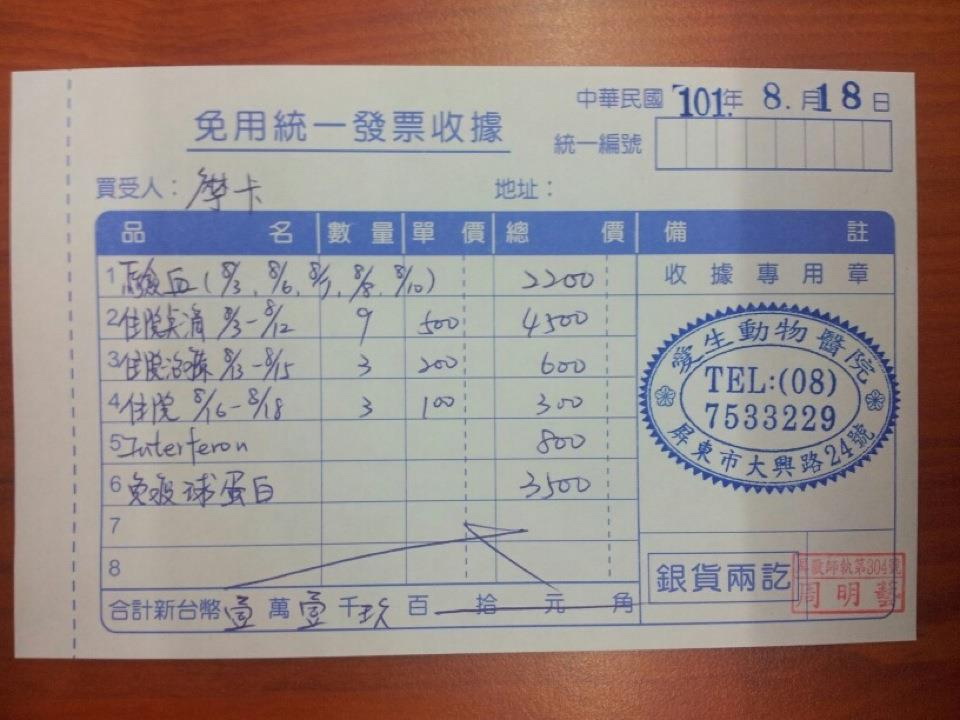 中華民國 101. 年 8. 月 18 日
免用統一發票收據
統一編號
買受人: 摩卡 地址:
品名 數量 單價 總價 備註
1 驗血 (8/3, 8/6, 8/7, 8/8, 8/10) 2200
收據專用章
2 住院点滴 8/3-8/12 9 500 4500
3 住院治療 8/13-8/15 3 200 600
4 住院 8/16-8/18 3 100 300
5 Interferon 800
6 免疫球蛋白 3500
7
8
愛生動物醫院
TEL:(08)
7533229
屏東市大興路24號
銀貨兩訖
屏獸師執第304號
周明藝
合計新台幣 壹 萬 壹 千 玖 百 拾 元 角